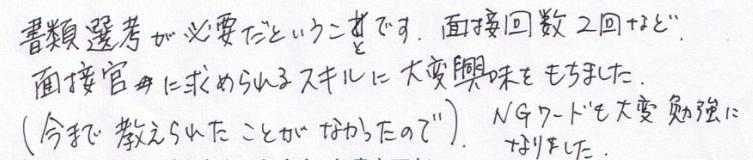 書類選考が必要だということです。面接回数2回など。
面接官に求められるスキルに大変興味をもちました。
(今まで教えられたことがなかったので)。NGワードも大変勉強に
なりました。